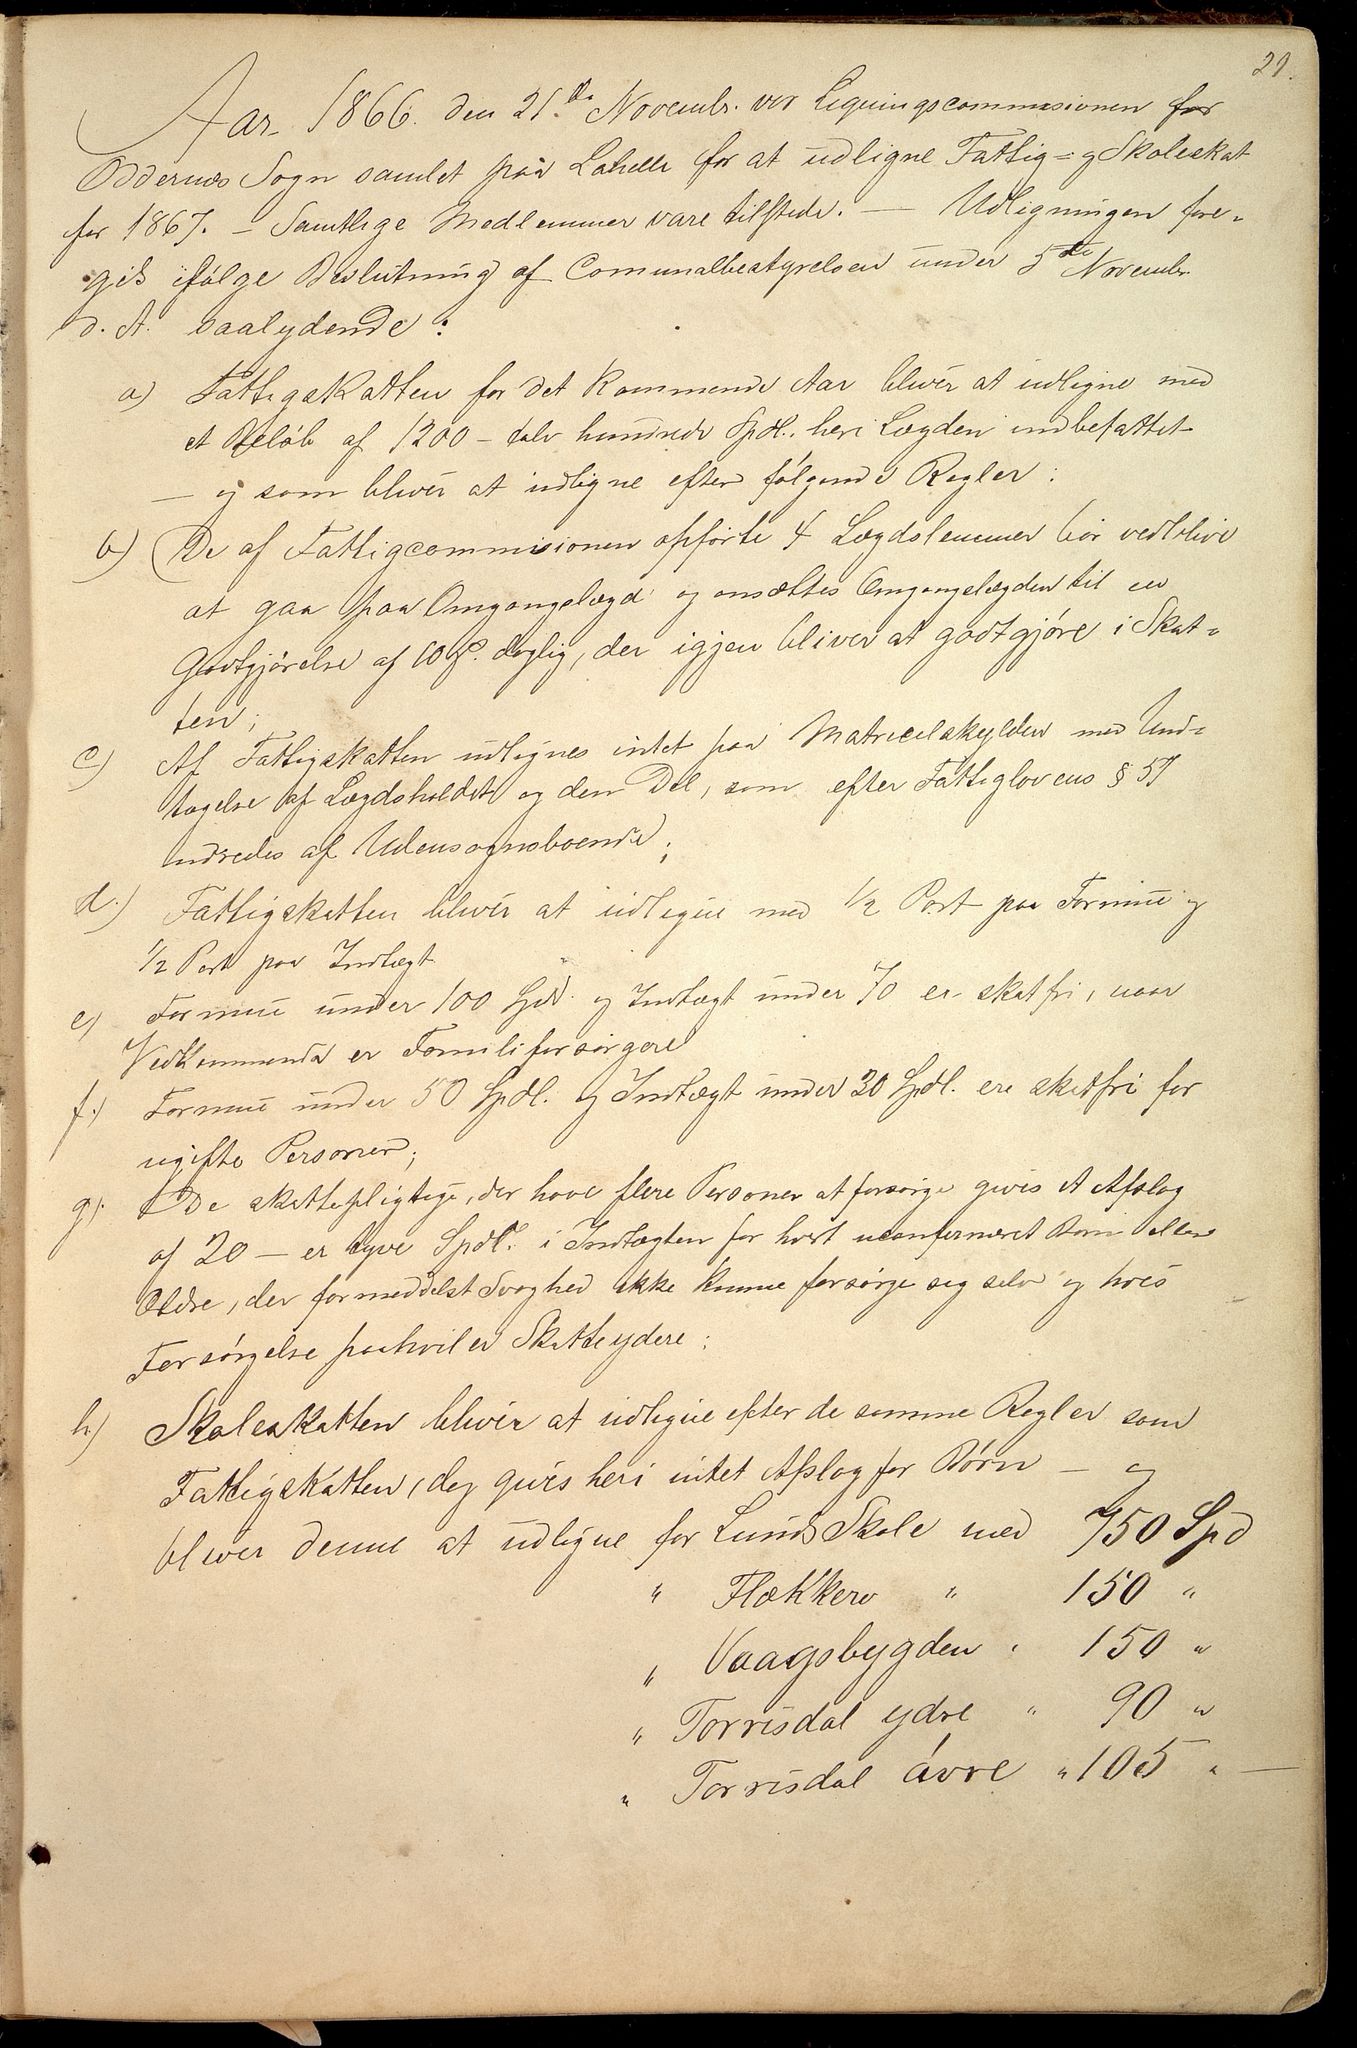 21.
Aar 1866 den 21de Novembr. var Ligningscommissionen for
Oddernæs Sogn samlet paa Lahelle for at udligne Fattig= og Skoleskat
for 1867. – Samtlige Medlemmer vare tilstede. — Udligningen fore=
gik ifølge Beslutning af Comunalbestyrelsen under 5te Novembr.
d. A. saalydende:
a) Fattigskatten for det kommende Aar bliver at udligne med
et Beløb af 1200 – tolv hundrede Spdl., heri Lægden indbefattet
— og som bliver at udligne efter følgende Regler:
b) De af Fattigcommisionen opførte 4 Lægdslemmer bør vedblive
at gaa paa Omgangslægd og ansættes Omgangslægden til en
Godtgjørelse af 10 ß. daglig, der igjen bliver at godtgjøre i Skat=
ten;
c) Af Fattigskatten udlignes intet paa Matricelskylden med Und=
tagelse af Lægdsholdet og den Del, som efter Fattiglovens § 57
udredes af Udensognsboende;
d.) Fattigskatten bliver at udligne med 1/2 Part paa Formue og
1/2 Part paa Indtægt
e) Formue under 100 Spd. og Indtægt under 70 er skatfri, naar
Vedkommende er Familiforsørgere
f.) Formue under 50 Spdl. og Indtægt under 30 Spdl. ere skatfri for
ugifte Personer;
g). De skattepligtige, der have flere Personer at forsørge gives et Afslag
af 20 – er tyve Spdl. i Indtægten for hvert uconfirmeret Barn eller
Ældre, der formedelst Svaghed ikke kunne forsørge sig selv og hvis
Forsørgelse paahviler Skatteydere;
h) Skoleskatten bliver at udligne efter de samme Regler som
Fattigskatten, dog gives heri intet Afslag for Børn — og
bliver denne at udligne for Lunds Skole med 750 Spd
" Flækkerø " 150 "
" Vaagsbygden " 150 "
" Torrisdal ydre " 90 "
" Torrisdal øvre " 105 " —